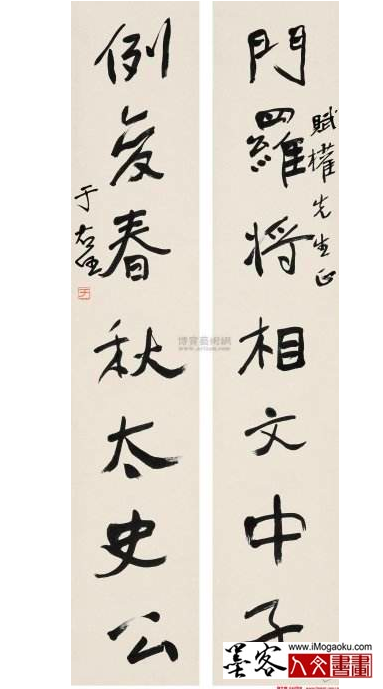 門羅将相文中子
賦權先生正
例變春秋太史公
于右任
博寶藝術網
www.artxun.com
墨客
www.iMogaoku.com
人文書畫